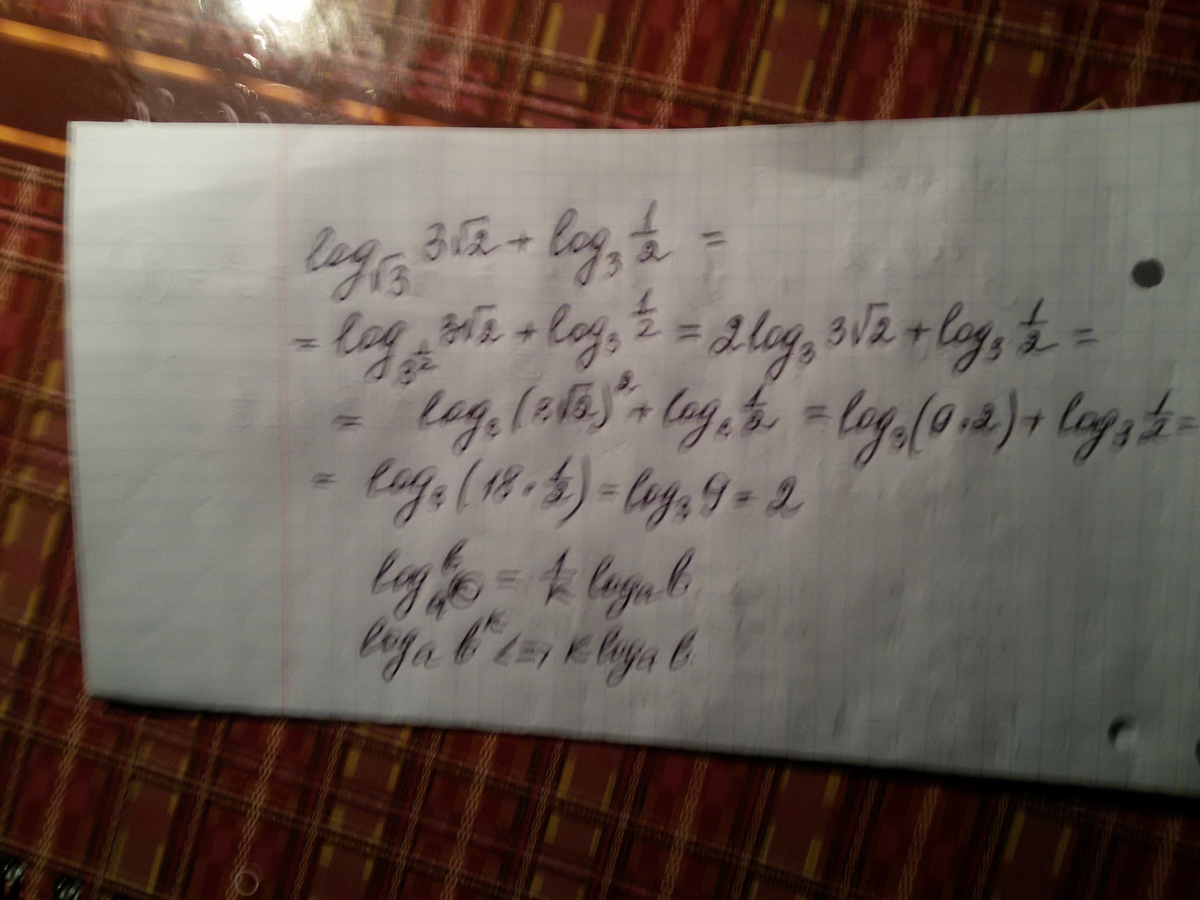 log_√3 3√2 + log_3 1/2 =
= log_3^(1/2) 3√2 + log_3 1/2 = 2log_3 3√2 + log_3 1/2 =
= log_3 (3√2)^2 + log_3 1/2 = log_3 (9·2) + log_3 1/2 =
= log_3 (18 · 1/2) = log_3 9 = 2
log_a^k b = 1/k log_a b
log_a b^k <=> k log_a b